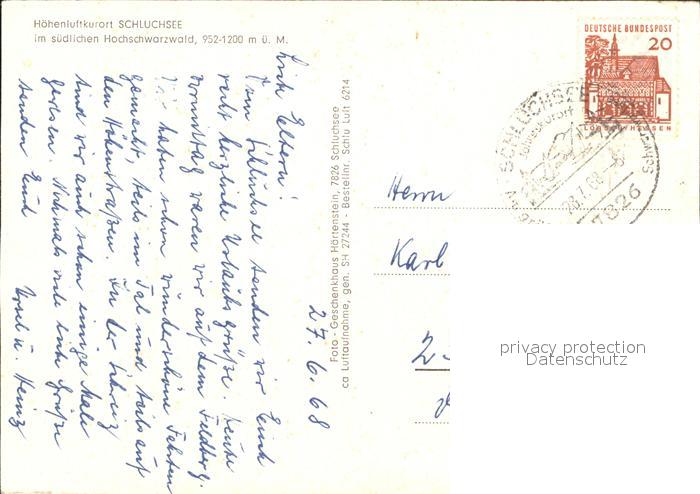 Höhenluftkurort SCHLUCHSEE
im südlichen Hochschwarzwald, 952-1200 m ü. M.
27.6.68
Liebe Eltern!
Vom Schluchsee senden wir Euch
recht herzliche Urlaubsgrüße. Heute
Donnerstag waren wir auf dem Feldberg.
Wir haben schon wunderschöne Fahrten
gemacht, teils im Tal und teils auf
den Höhenstraßen. In der Schweiz
sind wir auch schon einige Male
gewesen. Nochmals viele liebe Grüße
senden Euch
Ursel u. Heinz
Foto-Geschenkhaus Hörtenstein, 7826 Schluchsee
ca Luftaufnahme, gen. SH 27244 - Bestellnr. Schlu Luft 6214
DEUTSCHE BUNDESPOST
20
SCHLUCHSEE
7826
Herrn
Karl
2-
privacy protection
Datenschutz